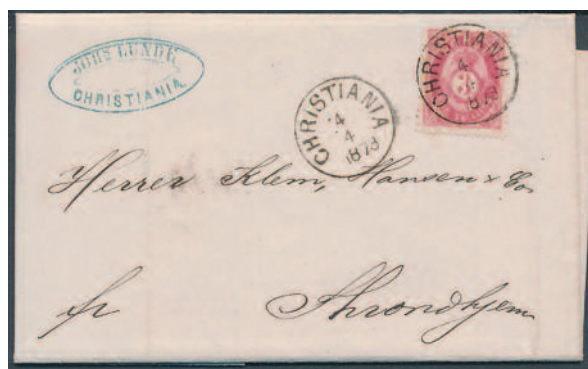 LUNDH
CHRISTIANIA
CHRISTIANIA
4
4
CHRISTIANIA
4
4
3
Herrer Klem, Hansen & Co.
pr
Throndhjem